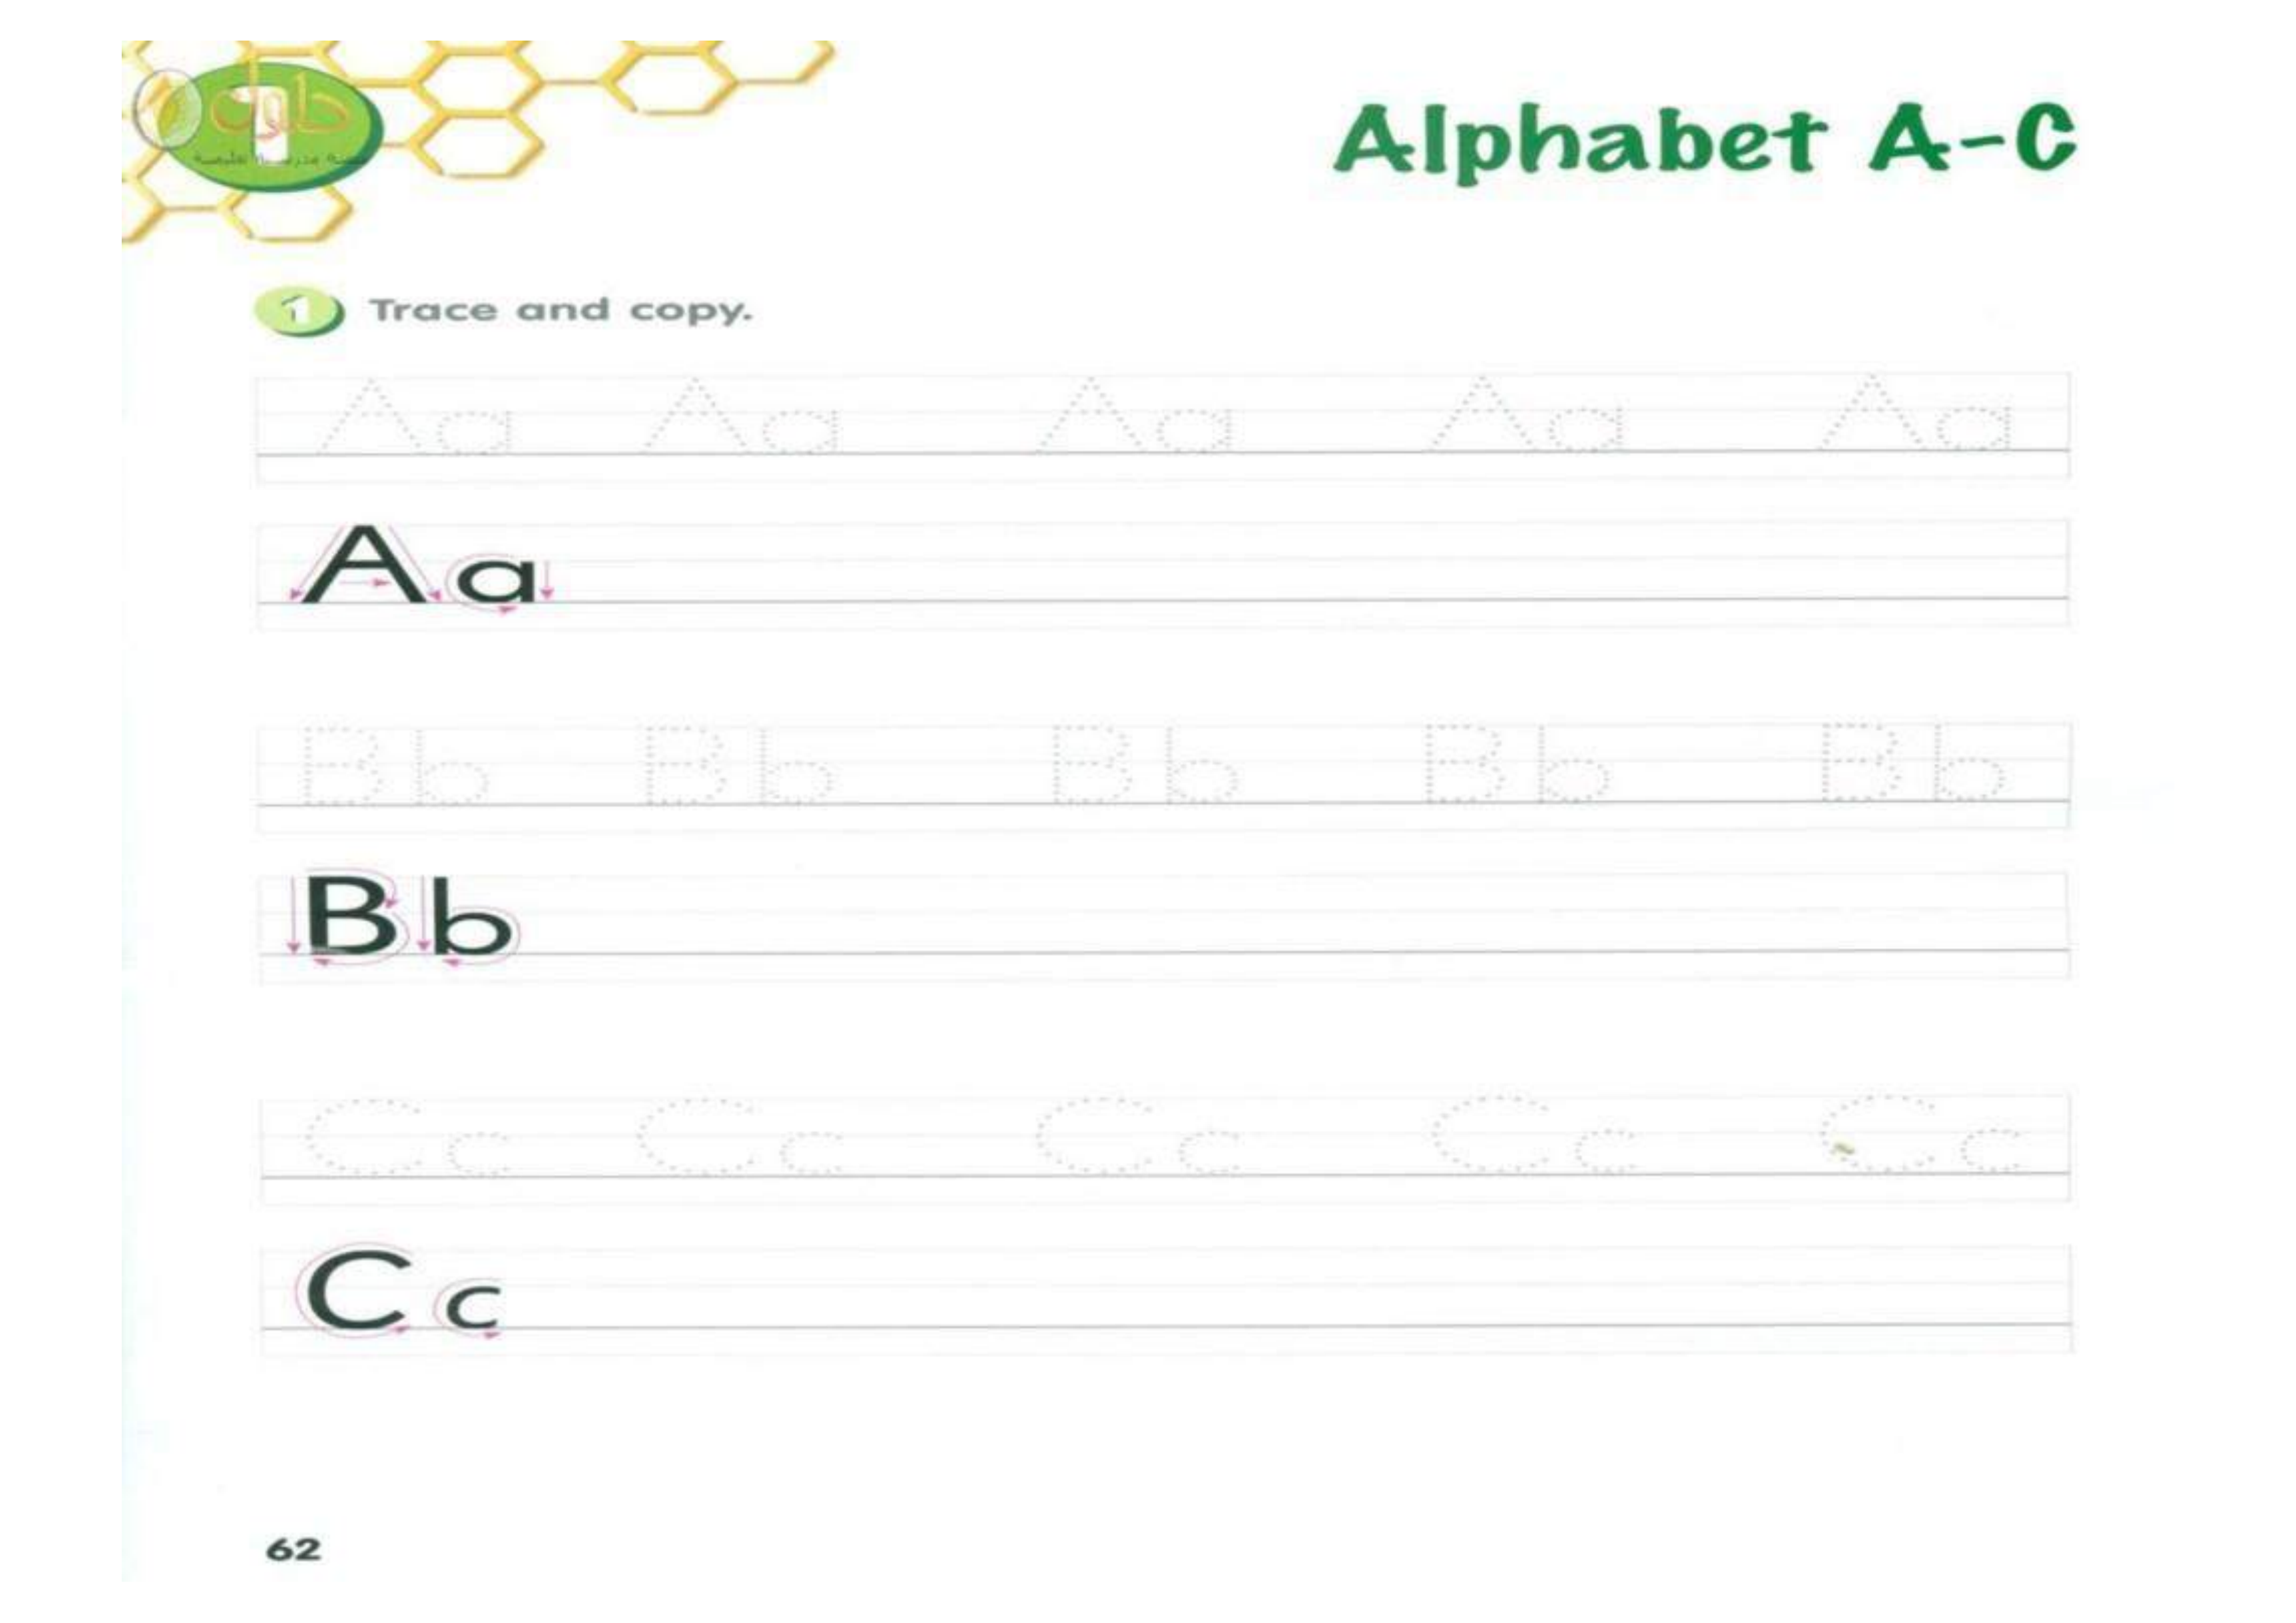 1
حلول
Alphabet A-C
1 Trace and copy.
Aa Aa Aa Aa Aa
Aa
Bb Bb Bb Bb Bb
Bb
Cc Cc Cc Cc Cc
Cc
62